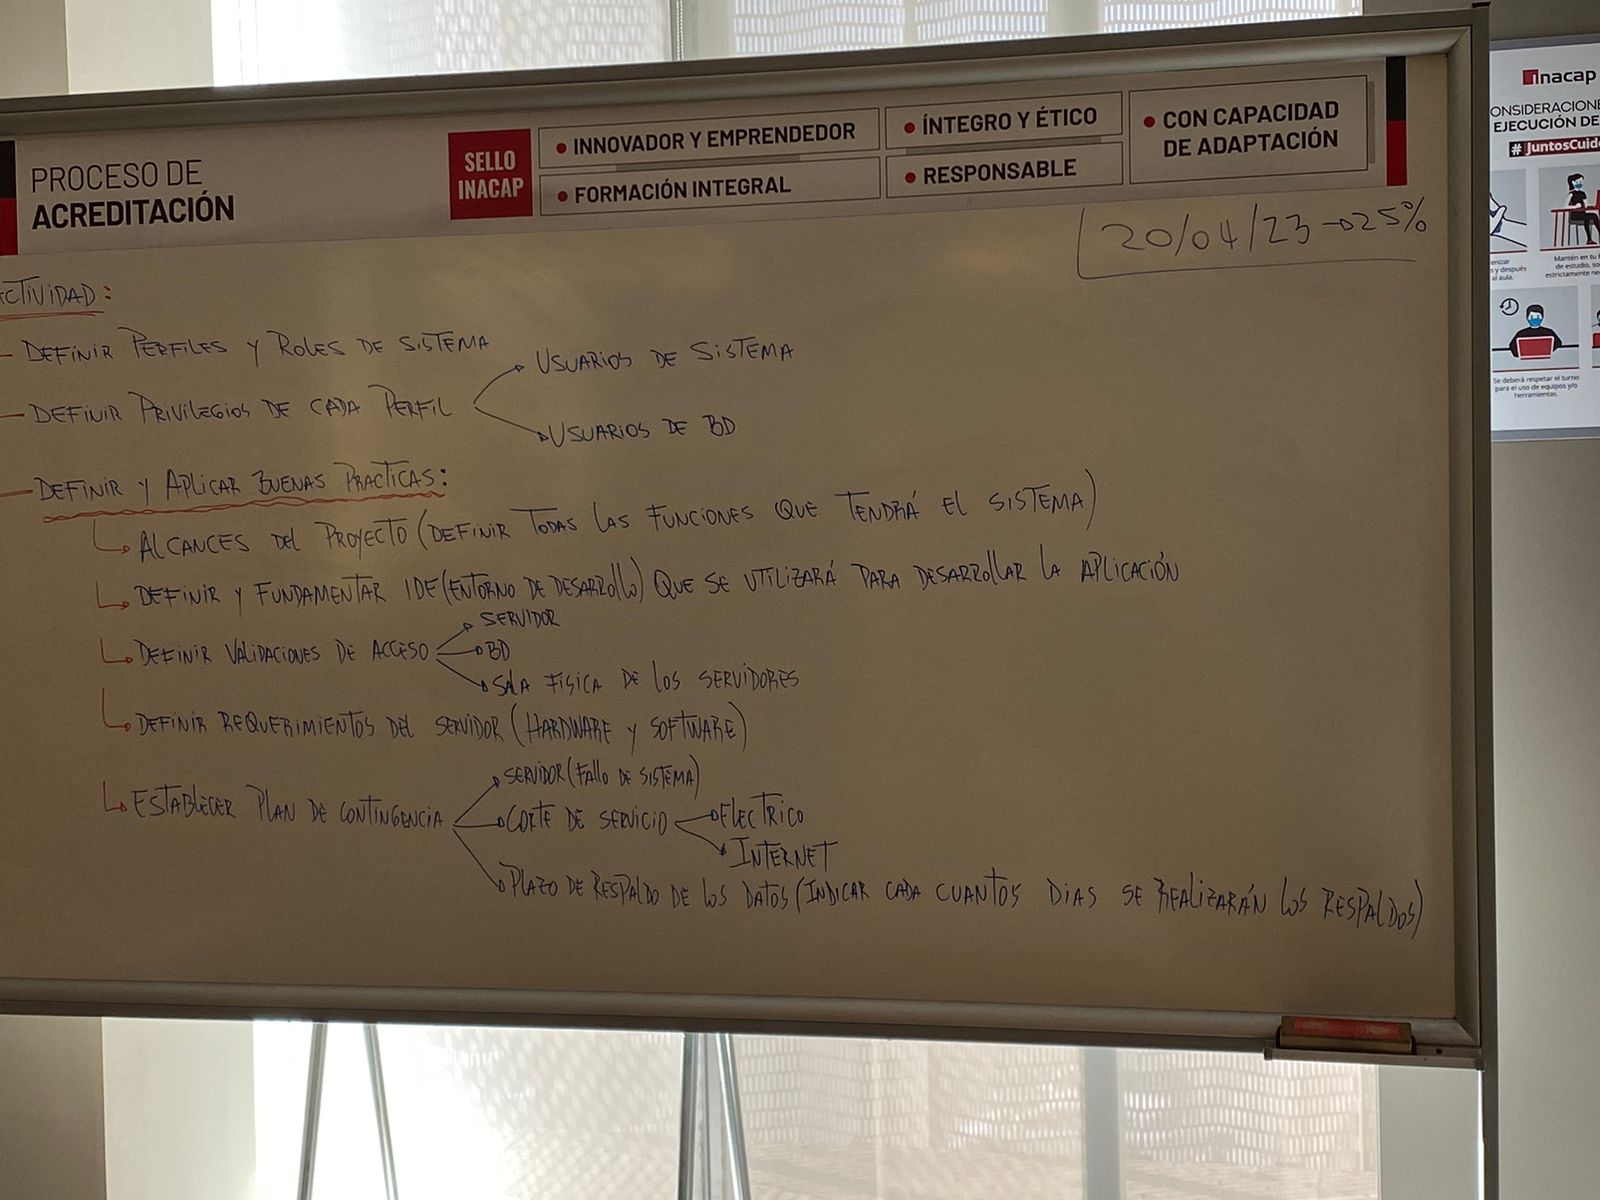 PROCESO DE
ACREDITACIÓN
SELLO
INACAP
• INNOVADOR Y EMPRENDEDOR
• FORMACIÓN INTEGRAL
• ÍNTEGRO Y ÉTICO
• RESPONSABLE
• CON CAPACIDAD
DE ADAPTACIÓN
20/04/23 → 25%
ACTIVIDAD:
- DEFINIR PERFILES Y ROLES DE SISTEMA
- DEFINIR PRIVILEGIOS DE CADA PERFIL
USUARIOS DE SISTEMA
USUARIOS DE BD
- DEFINIR Y APLICAR BUENAS PRACTICAS:
ALCANCES DEL PROYECTO (DEFINIR TODAS LAS FUNCIONES QUE TENDRÁ EL SISTEMA)
DEFINIR Y FUNDAMENTAR IDE (ENTORNO DE DESARROLLO) QUE SE UTILIZARÁ PARA DESARROLLAR LA APLICACIÓN
DEFINIR VALIDACIONES DE ACCESO
SERVIDOR
BD
SALA FISICA DE LOS SERVIDORES
DEFINIR REQUERIMIENTOS DEL SERVIDOR (HARDWARE Y SOFTWARE)
ESTABLECER PLAN DE CONTINGENCIA
SERVIDOR (FALLO DE SISTEMA)
CORTE DE SERVICIO
ELECTRICO
INTERNET
PLAZO DE RESPALDO DE LOS DATOS (INDICAR CADA CUANTOS DIAS SE REALIZARÁN LOS RESPALDOS)
inacap
ONSIDERACIONE
EJECUCIÓN DE
# JuntosCuid
y después
al aula.
Mantén en tu
de estudio, so
estrictamente ne
Se deberá respetar el turno
para el uso de equipos y/o
herramientas.